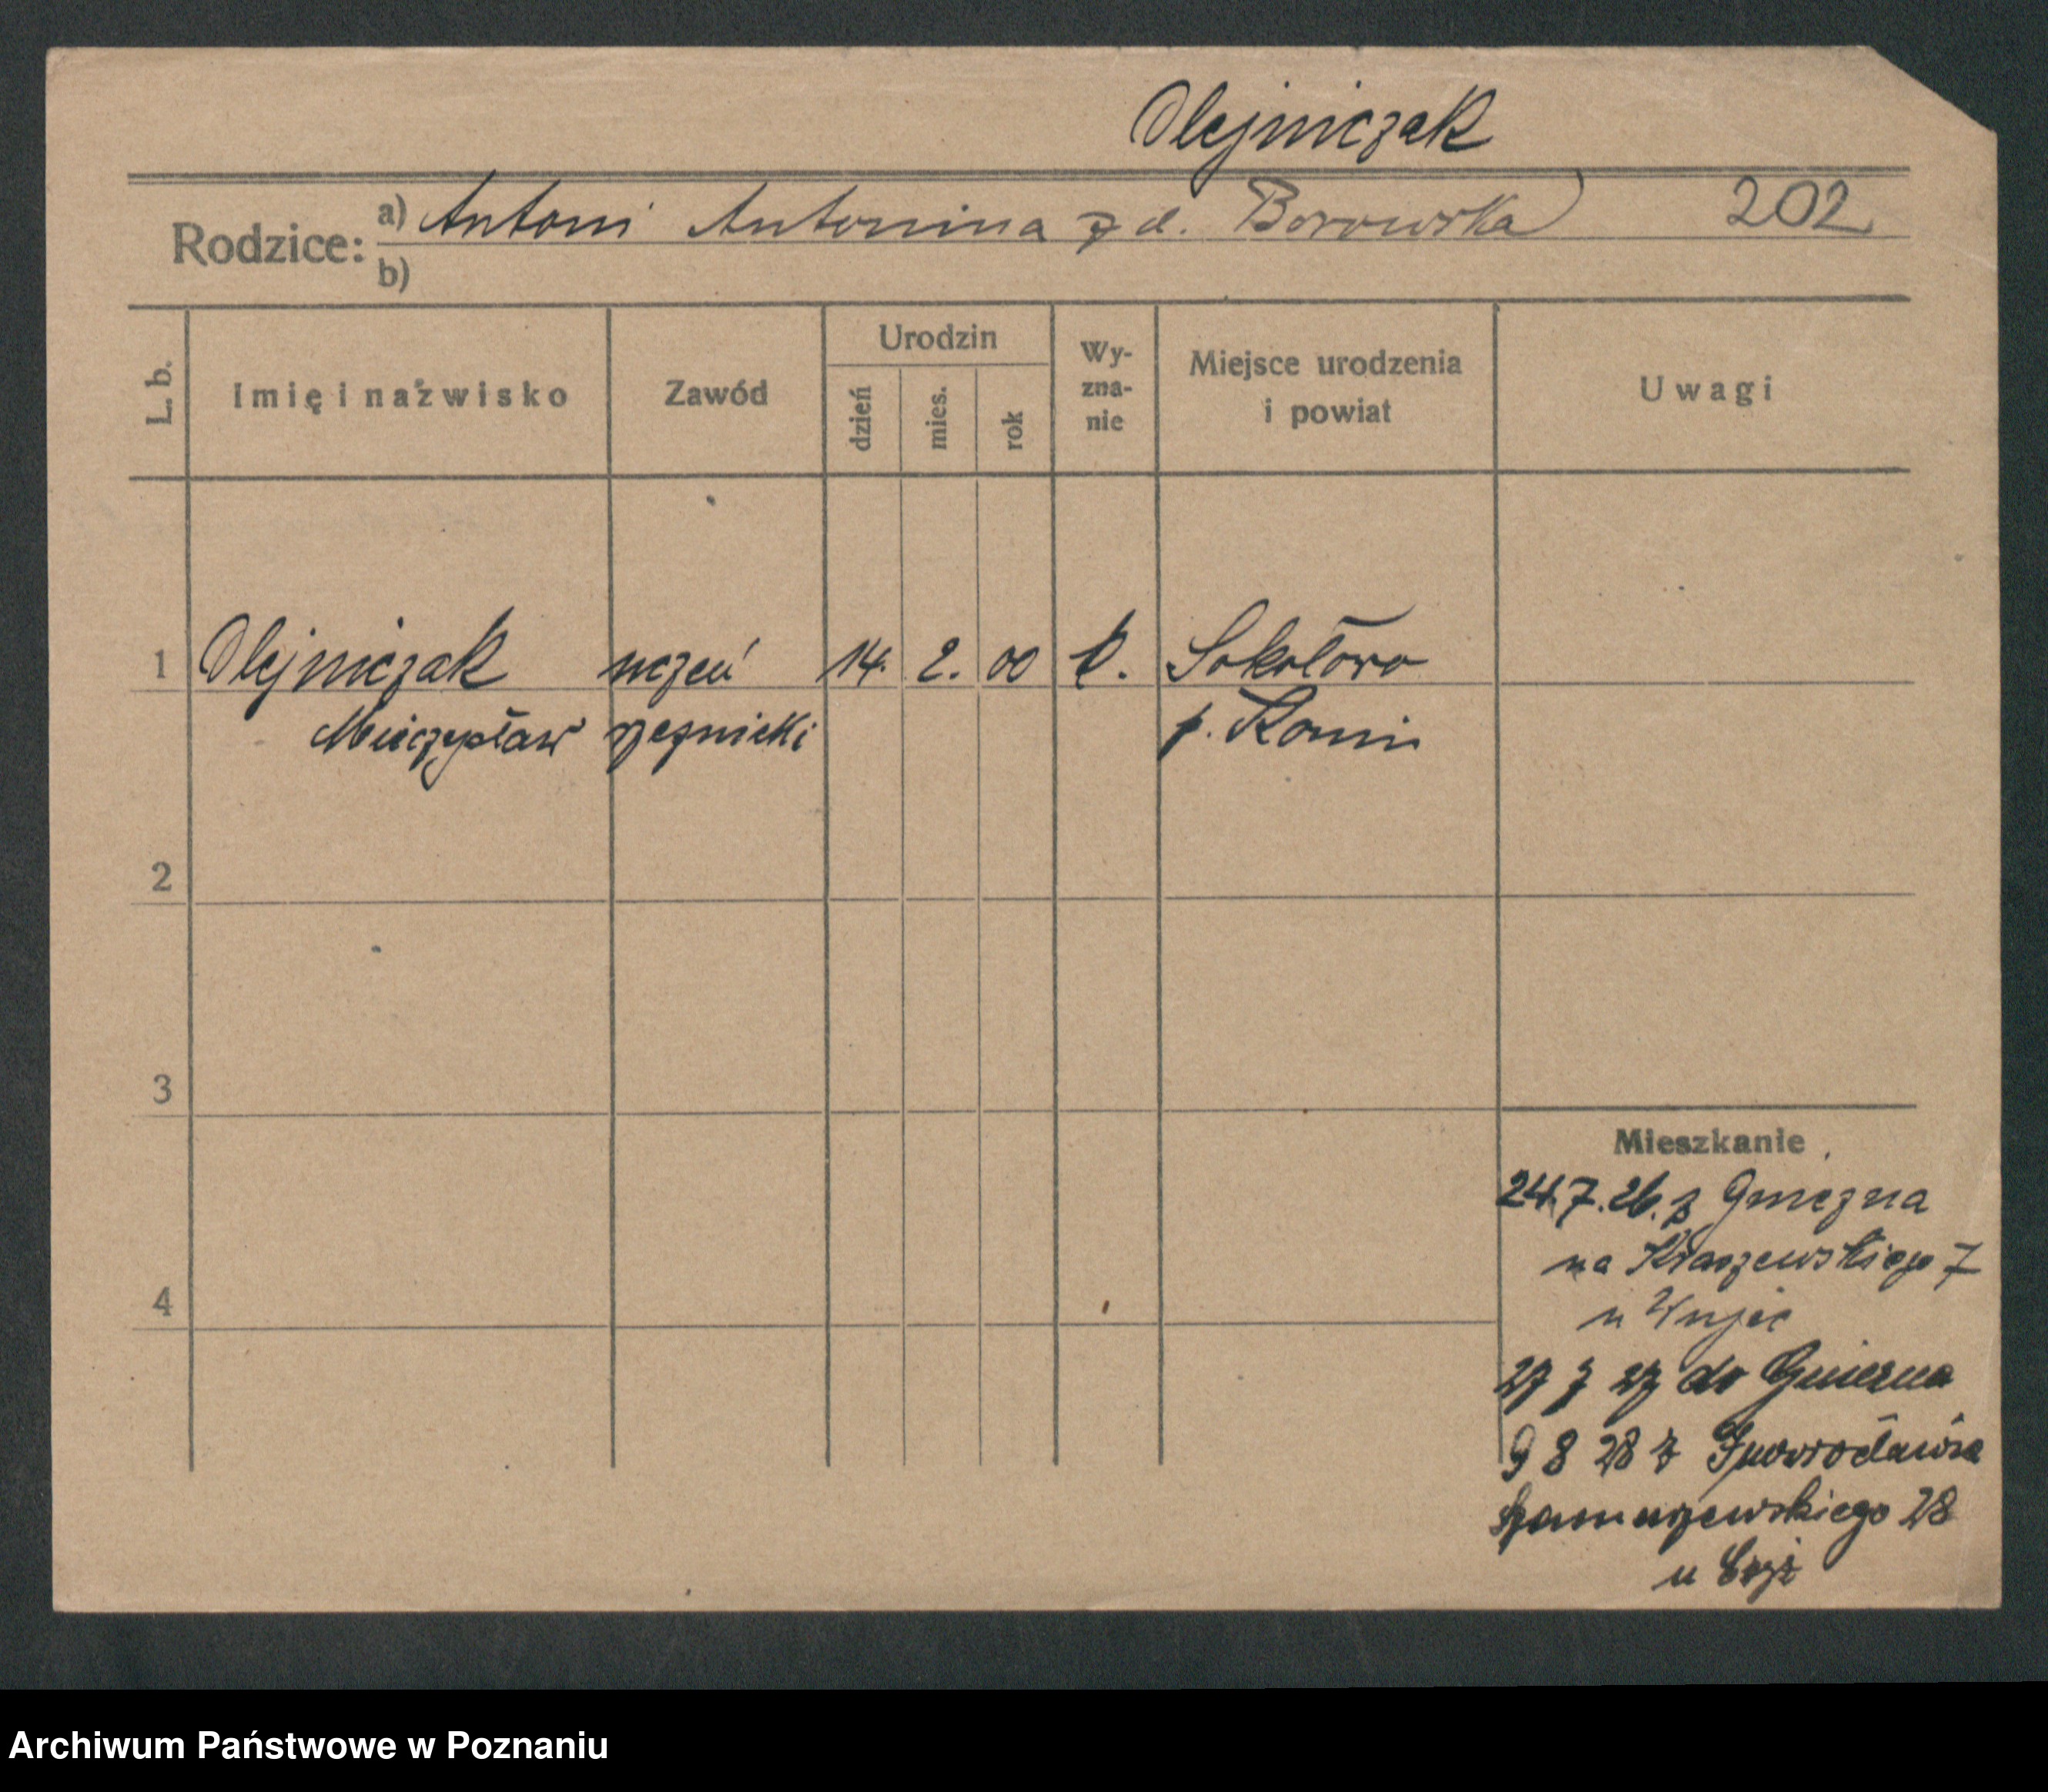 Olejniczak
Rodzice: a) Antoni Antonina z d. Borowska 202
b)
L. b. Imię i nazwisko Zawód Urodzin dzień mies. rok Wy-zna-nie Miejsce urodzenia i powiat Uwagi
1 Olejniczak uczeń 14. 2. 00 k. Sokołowo
Mieczysław rzeźnicki p. Konin
2
3
Mieszkanie
24.7.26. z Gniezna
na Kraszewskiego 7
4
u Wujec
27 7 27 do Gniezna
9 8 28 z Inowrocławia
Szamarzewskiego 28
u
Archiwum Państwowe w Poznaniu